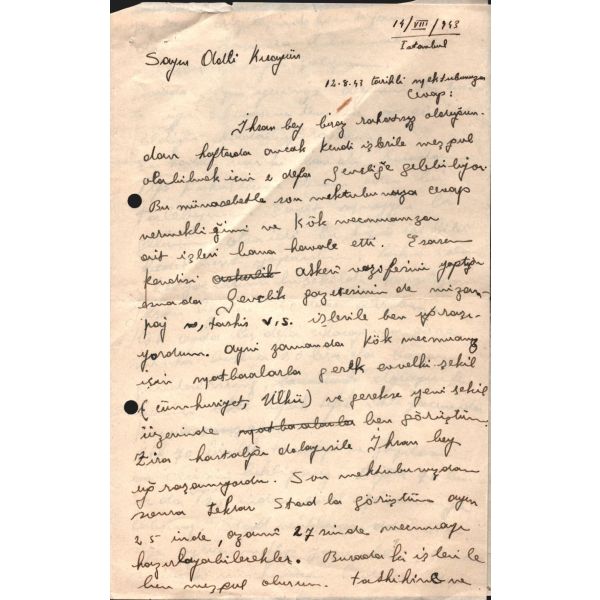 14/VIII/943
Istanbul
Sayın
12.8.43 tarihli mektubunuza
Cevap:
İhsan bey biraz rahatsız olduğun-
dan haftada ancak kendi işlerile meşgul
olabilmek için 1 defa Gençliğe gelebiliyor.
Bu münasebetle son mektubunuza cevap
vermekliğimi ve Kök mecmuamıza
ait işleri bana havale etti. Esasen
kendisi askerlik askerî vazifesini yaptığı
esnada Gençlik gazetesinin de mizan-
paj, tashih v.s. işlerile ben uğraşı-
yordum. Ayni zamanda Kök mecmuamız
için matbaalarla gerek evvelki şekil
(Cümhuriyet, Ülkü) ve gerekse yeni şekil
üzerinde matbaalarla ben görüştüm.
Zira hastalığı dolayısile İhsan bey
uğraşamıyordu. Son mektubunuzdan
sonra tekrar Stad la görüştüm ayın
25 inde, azamî 27 sinde mecmuayı
hazırlayabilecekler. Buradaki işleri le
ben meşgul olurum. tashihine ve